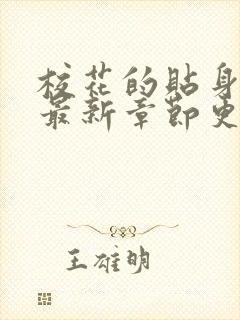 校花的贴身
最新章节更
王雄明